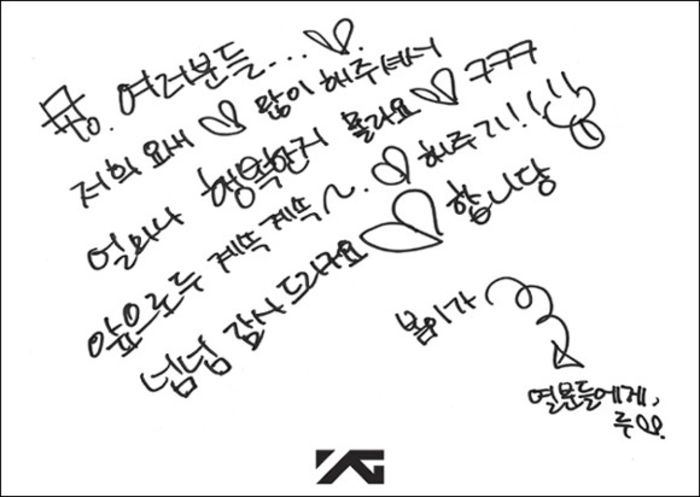 뿅. 여러분들...♡.
저희 요새 ♡ 많이 해주셔서
얼마나 행벅한지 몰라요 ♡ ㅋㅋㅋ
앞으로두 계뜩 계뜩~. ♡ 해주기!!!
넘넘 감사드리구요 ♡ 합니당
봄이가
열분들에게,
YG